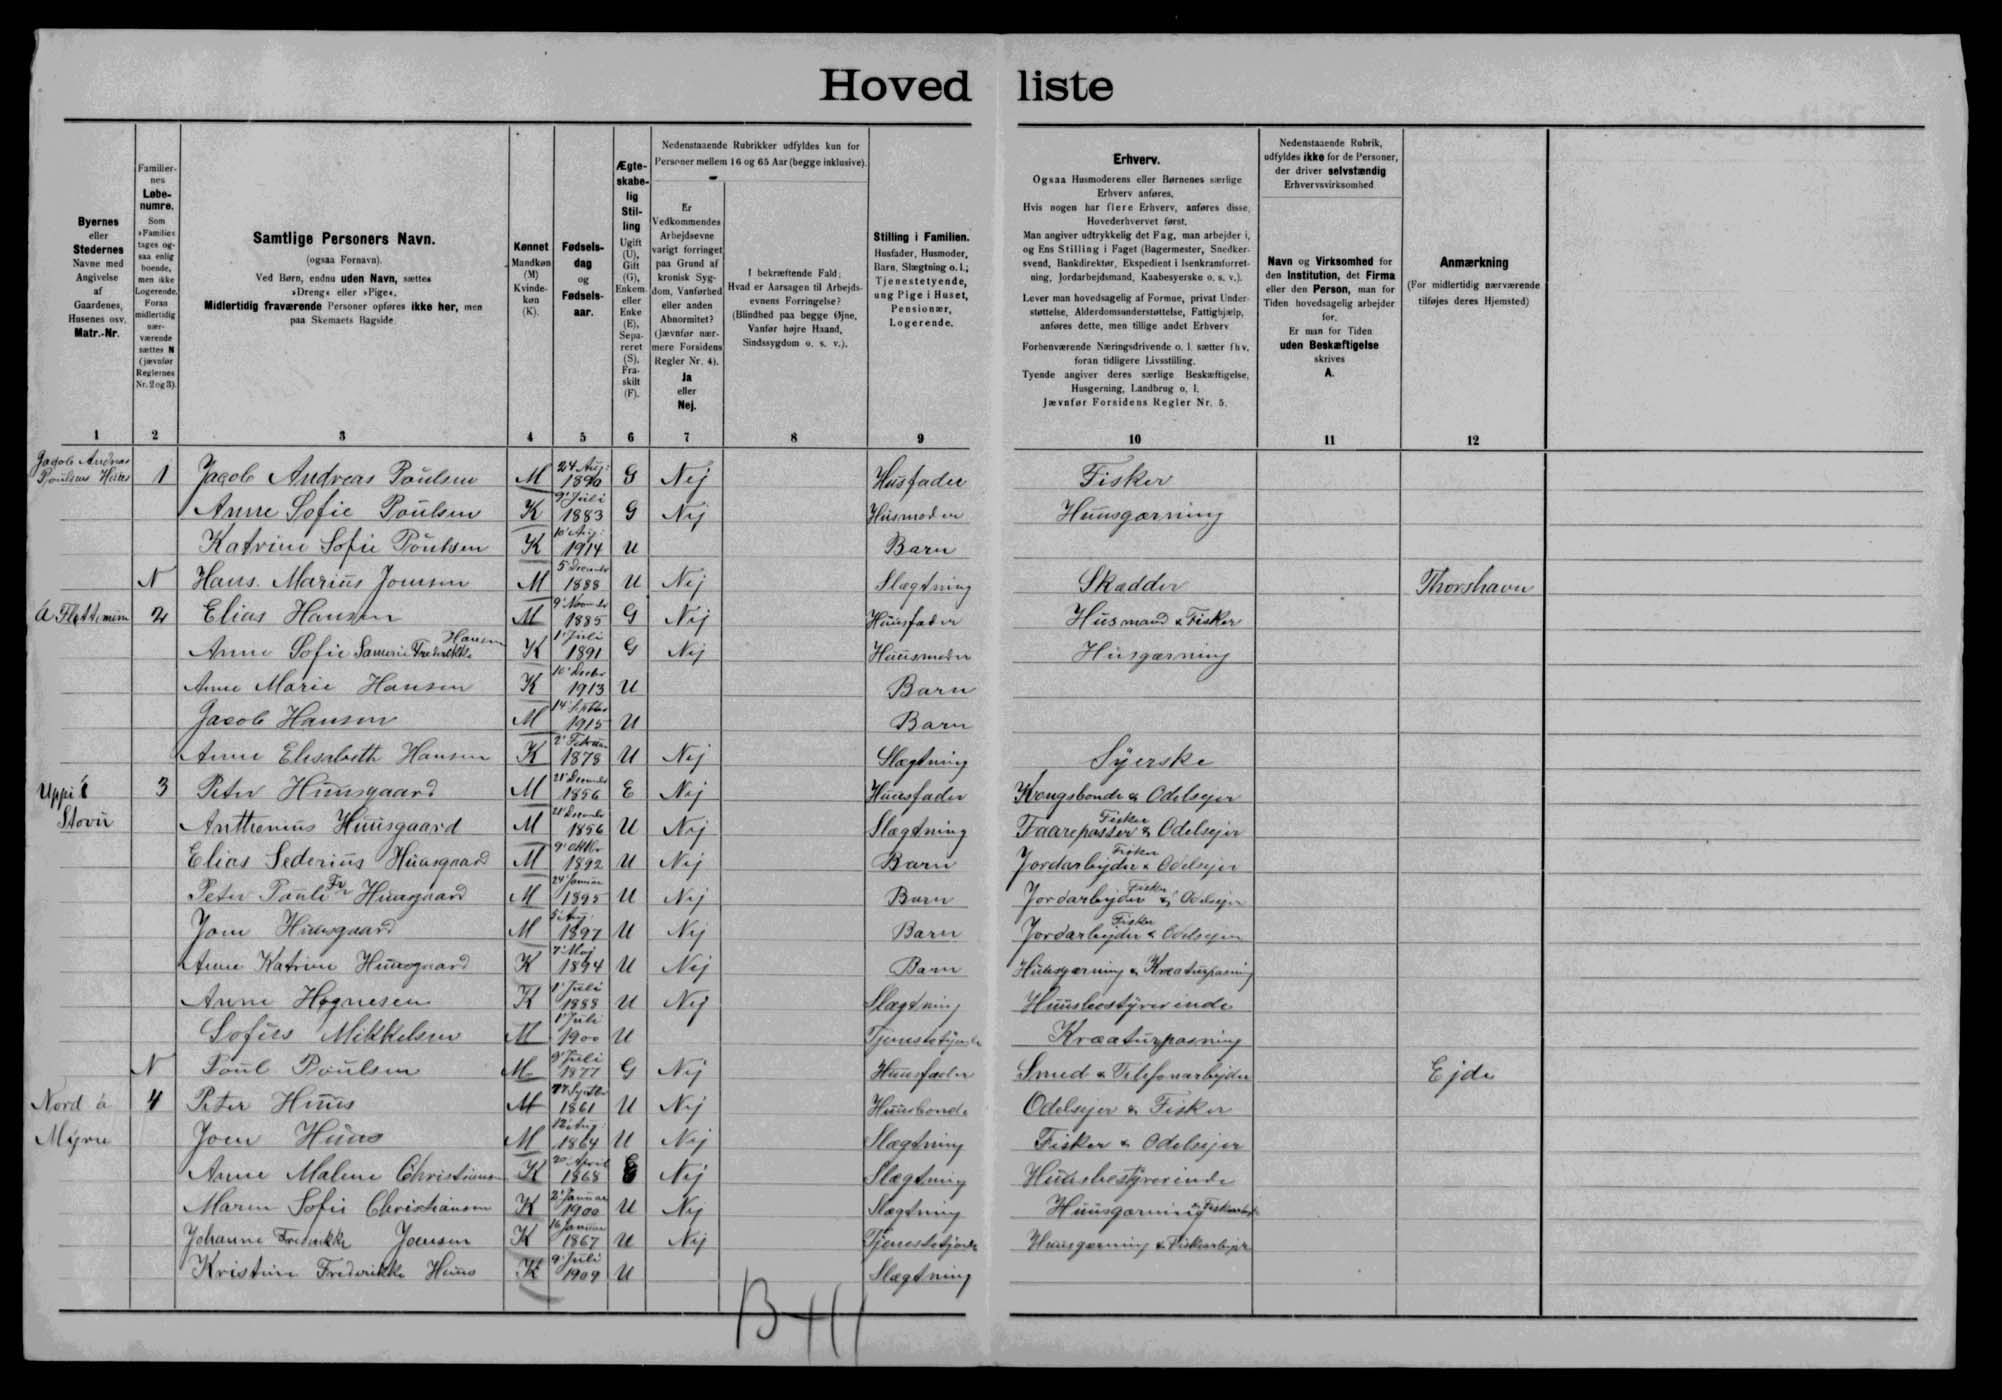 Hovedliste
Byernes eller Stedernes Navne med Angivelse af Gaardenes, Husenes osv. Matr.-Nr.
Familiernes Løbenumre. Som »Familie« tages ogsaa enlig boende, men ikke Logerende. Foran midlertidig nærværende sættes N (jævnfør Reglernes Nr. 2 og 3).
Samtlige Personers Navn. (ogsaa Fornavn). Ved Børn, endnu uden Navn, sættes »Dreng« eller »Pige«, Midlertidig fraværende Personer opføres ikke her, men paa Skemaets Bagside.
Kønnet Mandkøn (M) Kvindekøn (K).
Fødselsdag og Fødselsaar.
Ægteskabelig Stilling Ugift (U), Gift (G), Enkem. eller Enke (E), Separeret (S), Fraskilt (F).
Nedenstaaende Rubrikker udfyldes kun for Personer mellem 16 og 65 Aar (begge inklusive).
Er Vedkommendes Arbejdsevne varigt forringet paa Grund af kronisk Sygdom, Vanførhed eller anden Abnormitet? (Jævnfør nærmere Forsidens Regler Nr. 4). Ja eller Nej.
I bekræftende Fald: Hvad er Aarsagen til Arbejdsevnens Forringelse? (Blindhed paa begge Øjne, Vanfør højre Haand, Sindssygdom o. s. v.).
Stilling i Familien. Husfader, Husmoder, Barn, Slægtning o. l.; Tjenestetyende, ung Pige i Huset, Pensionær, Logerende.
Erhverv. Ogsaa Husmoderens eller Børnenes særlige Erhverv anføres. Hvis nogen har flere Erhverv, anføres disse, Hovederhvervet først. Man angiver udtrykkelig det Fag, man arbejder i, og Ens Stilling i Faget (Bagermester, Snedkersvend, Bankdirektør, Ekspedient i Isenkramforretning, Jordarbejdsmand, Kaabesyerske o. s. v.). Lever man hovedsagelig af Formue, privat Understøttelse, Alderdomsunderstøttelse, Fattighjælp, anføres dette, men tillige andet Erhverv. Forhenværende Næringsdrivende o. l. sætter fhv. foran tidligere Livsstilling. Tyende angiver deres særlige Beskæftigelse, Husgerning, Landbrug o. l. Jævnfør Forsidens Regler Nr. 5.
Nedenstaaende Rubrik, udfyldes ikke for de Personer, der driver selvstændig Erhvervsvirksomhed
Navn og Virksomhed for den Institution, det Firma eller den Person, man for Tiden hovedsagelig arbejder for. Er man for Tiden uden Beskæftigelse skrives A.
Anmærkning (For midlertidig nærværende tilføjes deres Hjemsted)
1 2 3 4 5 6 7 8 9 10 11 12
Jacob Andreas Poulsens Huus 1 Jacob Andreas Poulsen M 24 Aug: 1890 G Nej Husfader Fisker
Anne Sofie Poulsen K 9' Juli 1883 G Nej Husmoder Huusgærning
Katrine Sofie Poulsen K 10' Aug: 1914 U Barn
N Hans Marius Joensen M 5 December 1888 U Nej Slægtning Skædder Thorshavn
2 Elias Hansen M 9' November 1885 G Nej Huusfader Husmand & Fisker
Anne Sofie Frederikke Hansen K 1' Juli 1891 G Nej Huusmoder Husgærning
Anne Marie Hansen K 1913 U Barn
Jacob Hansen M 14' Septbr 1915 U Barn
Anne Elisabeth Hansen K 2' Februar 1878 U Nej Slægtning Syerske
Uppi í Stovu 3 Peter Huusgaard M 21' December 1856 E Nej Huusfader Kongsbonde & Odelsejer
Anthonius Huusgaard M 21' December 1856 U Nej Slægtning Faarepasser Fisker & Odelsejer
Elias Sederius Huusgaard M 9' Oktbr 1892 U Nej Barn Jordarbejder Fisker & Odelsejer
Peter Pauli Fr Huusgaard M 24' Januar 1895 U Nej Barn Jordarbejder Fisker & Odelsejer
Joen Huusgaard M 5' Aug: 1897 U Nej Barn Jordarbejder Fisker & Odelsejer
Anne Katrine Huusgaard K 7' Maj 1894 U Nej Barn Huusgærning & Kreaturpasning
Anne Høgnesen K 1' Juli 1888 U Nej Slægtning Huusbestyrerinde
Sofus Mikkelsen M 1' Juli 1900 U Tjenestetyende Kræaturpasning
N Poul Poulsen M 9' Juli 1877 G Nej Huusfader Smed & Telefonarbejder Ejde
Nord á Myru 4 Peter Huus M 17' Septbr 1861 U Nej Huusbonde Odelsejer & Fisker
Joen Huus M 12' Aug: 1864 U Nej Slægtning Fisker & Odelsejer
Anne Malene Christiansen K 20' April 1868 E Nej Slægtning Huusbestyrerinde
Maren Sofie Christiansen K 2' Januar 1900 U Nej Slægtning Huusgærning & Fiskearbejde
Johanne Frederikke Joensen K 16 Januar 1867 U Nej Tjenestetyende Huusgærning & Fiskearbejde
Kristine Frederikke Huus K 9' Juli 1909 U Slægtning